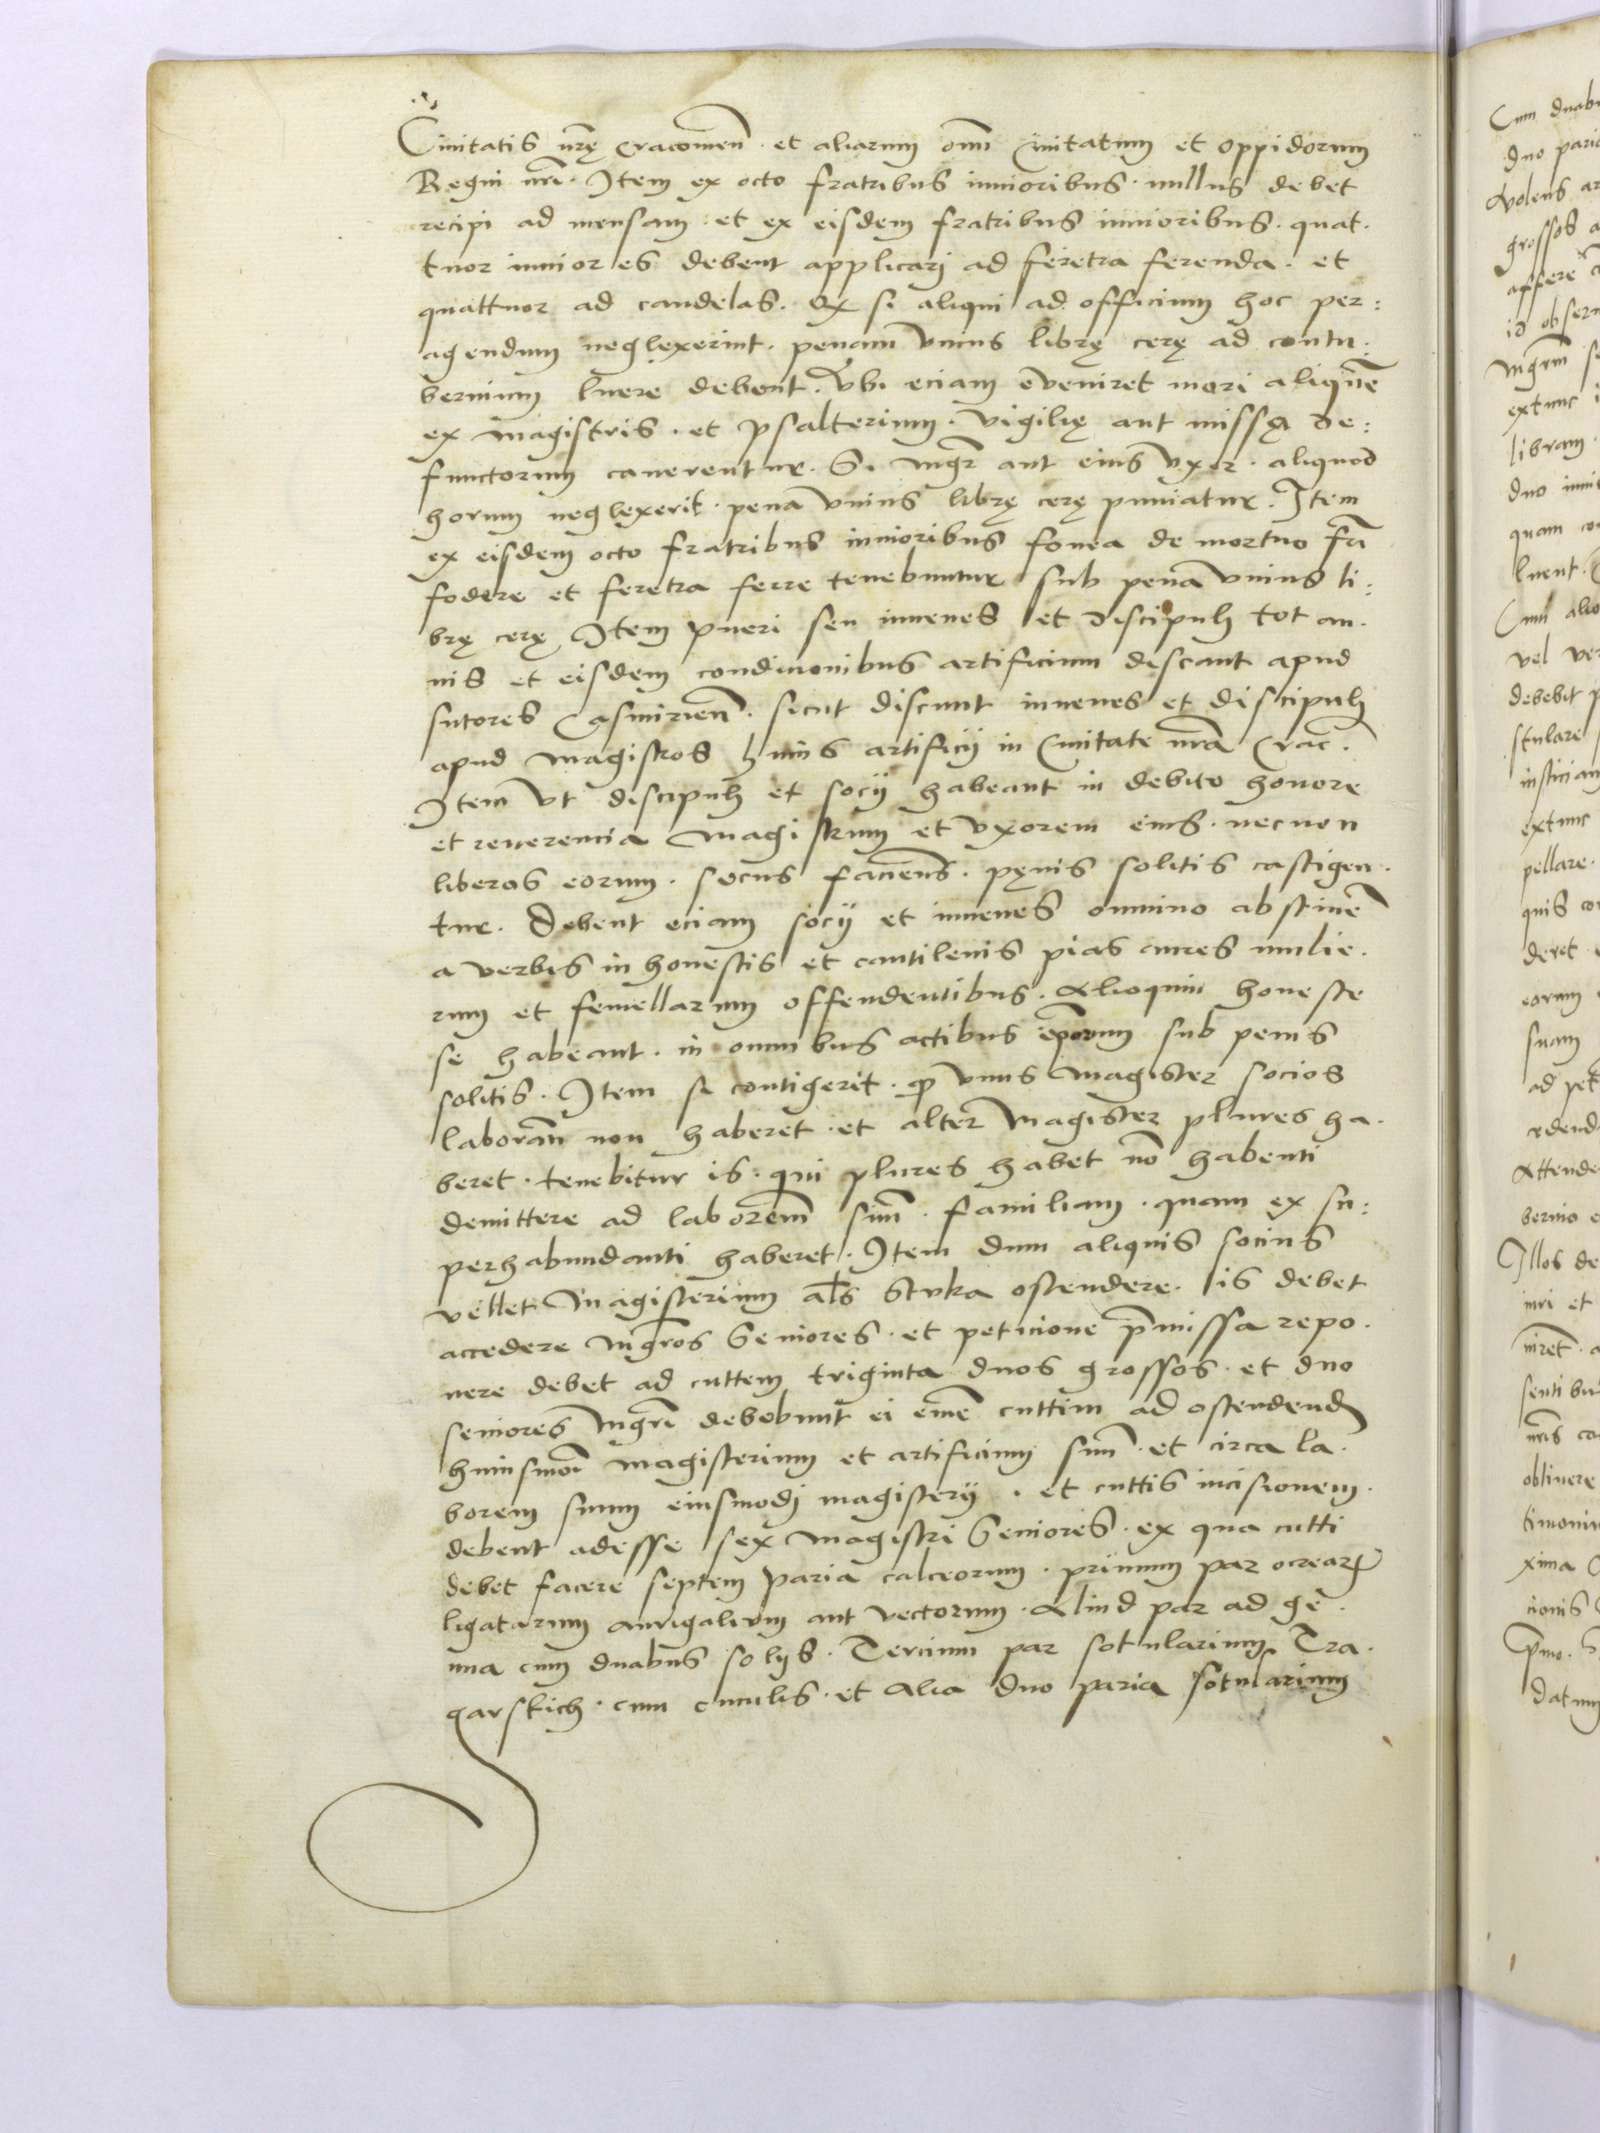 Ciuitatis nrę Cracouien. et aliarum omn Ciuitatum et oppidorum
Regni nri. Item ex octo fratribus iunioribus. nullus debet
recipi ad mensam. et ex eisdem fratribus iunioribus. quat.
tuor iuniores debent applicarj ad feretra ferenda. et
quattuor ad candelas. Qz si aliqui ad officium hoc per:
agendum neglexerint. penam vnius librę cerę ad contu.
bernium luere debent. Vbi eciam eveniret mori aliquē
ex magistris. et psalterium. vigilię aut missę de:
functorum canerentur. Si mgr aut eius vxor. aliquod
horum neglexerit. pena vnius librę cerę puniatur. Item
ex eisdem octo fratribus iunioribus fouea de mortuo
fodere et feretra ferre tenebuntur sub pena vnius li:
brę cerę Item pueri seu iuuenes et discipuli tot an.
nis et eisdem condicionibus artificium discant apud
sutores Casmirien. sicut discunt iuuenes et discipuli
apud magistros huius artificij in Ciuitate nra Crac.
Item vt discipuli et socij habeant in debito honore
et reuerencia magistrum et vxorem eius. necnon
liberos eorum. secus faciens. pęnis solitis castigen.
tur. Debent eciam socij et iuuenes omnino abstinē
a verbis inhonestis et cantilenis pias aures mulie.
rum et femellarum offendentibus. Alioquin honeste
se habeant. in omnibus actibus eorum sub penis
solitis. Item si contigerit. qp vnus magister socios
laboran non haberet. et alter magister plures ha.
beret. tenebitur is. qui plures habet nō habenti
demittere ad laborem suū. familiam. quam ex su:
perhabundanti haberet. Item dum aliquis socius
vellet magisterium als Stuka ostendere. is debet
accedere mgros Seniores. et peticione pmissa repo.
nere debet ad cuttem triginta duos grossos. et duo
seniores mgri debebunt ei emē cuttim ad ostendend
huiusmoi magisterium et artificium suū. et circa la.
borem suum eiusmodj magisterij. et cuttis incisionem.
debent adesse sex magistri Seniores. ex qua cutti
debet facere septem paria calceorum. primum par ocrearz
ligatarum aurigalium aut vectorum. Aliud par ad ge.
nua cum duabus solijs. Tercium par sotularium Tra.
garskich. cum cuculis. et Alia duo paria sotularium
Cum duab
duo paria
volens
grossos
id obseru
mgrm
extunc
libram
duo
quam
luent.
Cum
vel
debebit
stulare
insticiam
extunc
pellare.
quis
deret
eorum
suam
ad
Attende
bernio
Illos de
iuri et
senti
obtinere
timoniu
xima
cionis
datum